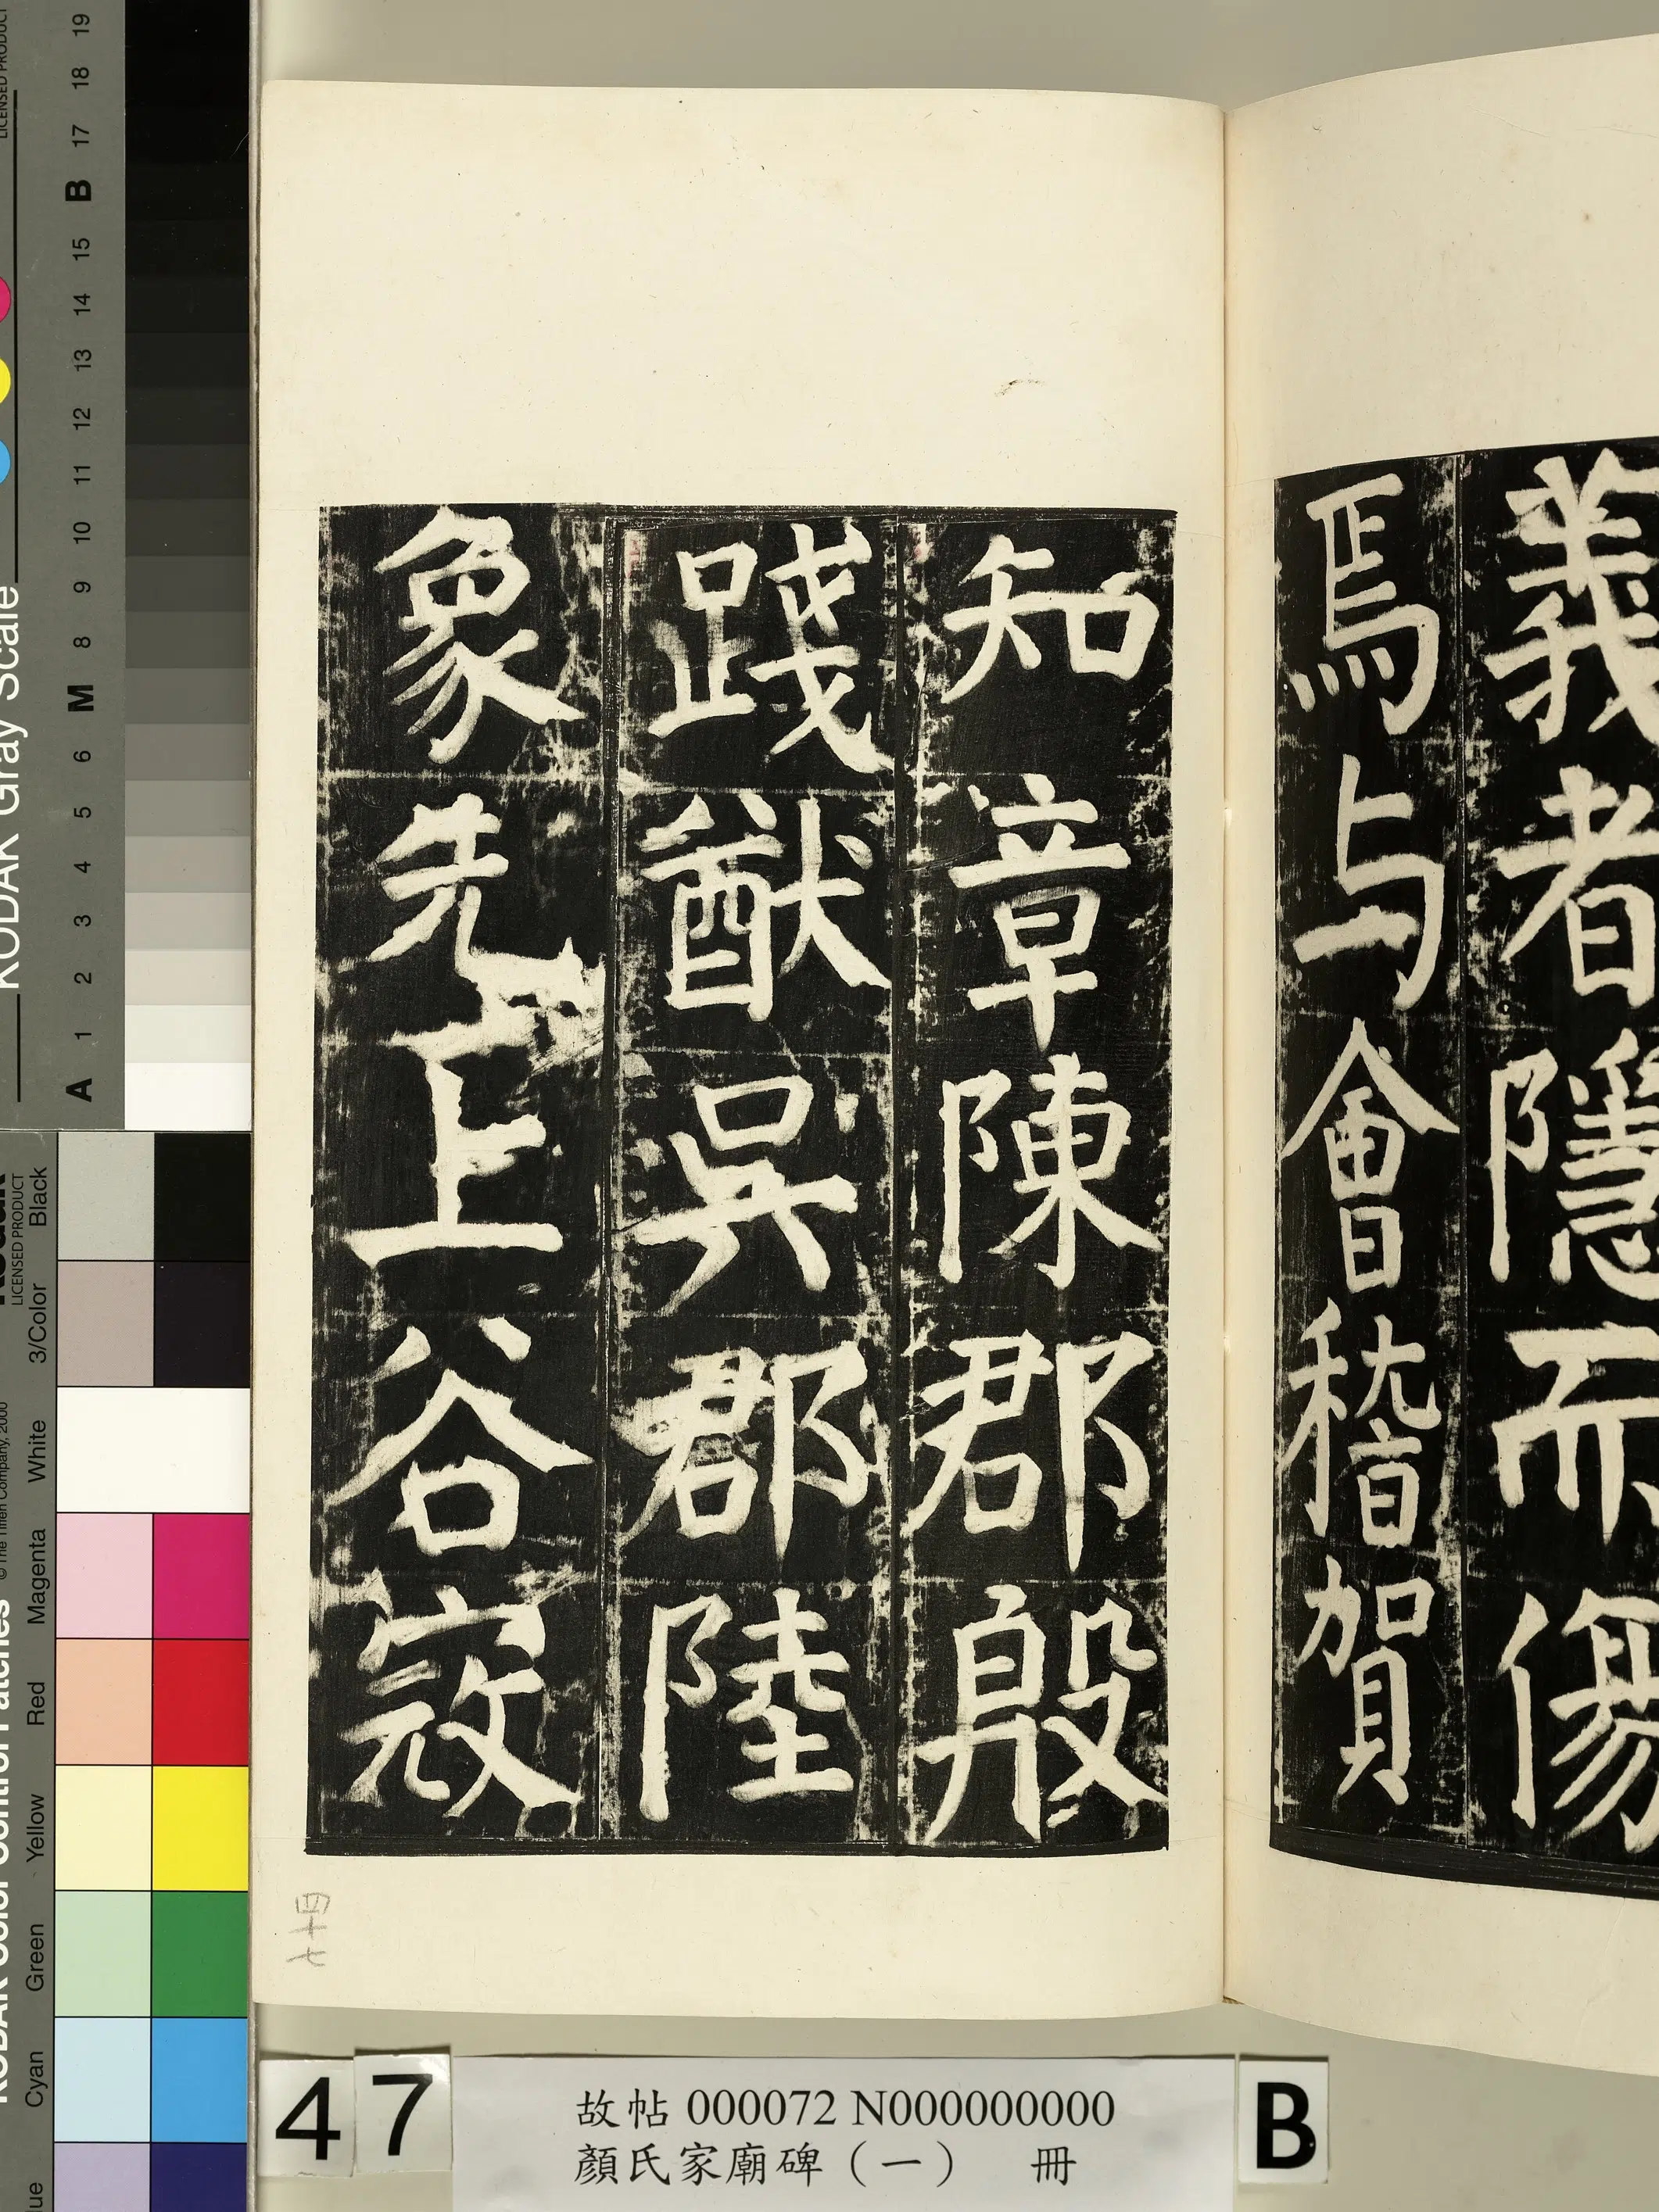 義者隱而傷
焉与會稽賀
知章陳郡殷
踐猷吳郡陸
象先上谷寇
四十七
47
故帖 000072 N000000000
顏氏家廟碑（一） 冊
B
KODAK Gray Scale
LICENSED PRODUCT
A 1 2 3 4 5 6 M 8 9 10 11 12 13 14 15 B 17 18 19
LICENSED PRODUCT
© The Tiffen Company, 2000
Cyan Green Yellow Red Magenta White 3/Color Black